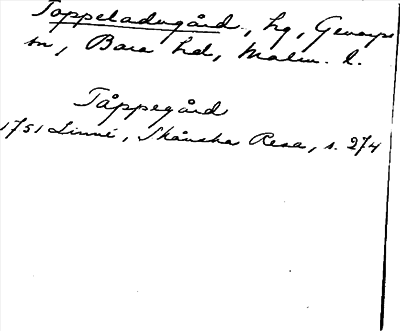 Toppeladugård, hg, Genarps
sn, Bara hd, Malm. l.
Tåppegård
1751 Linné, Skånska Resa, s. 274